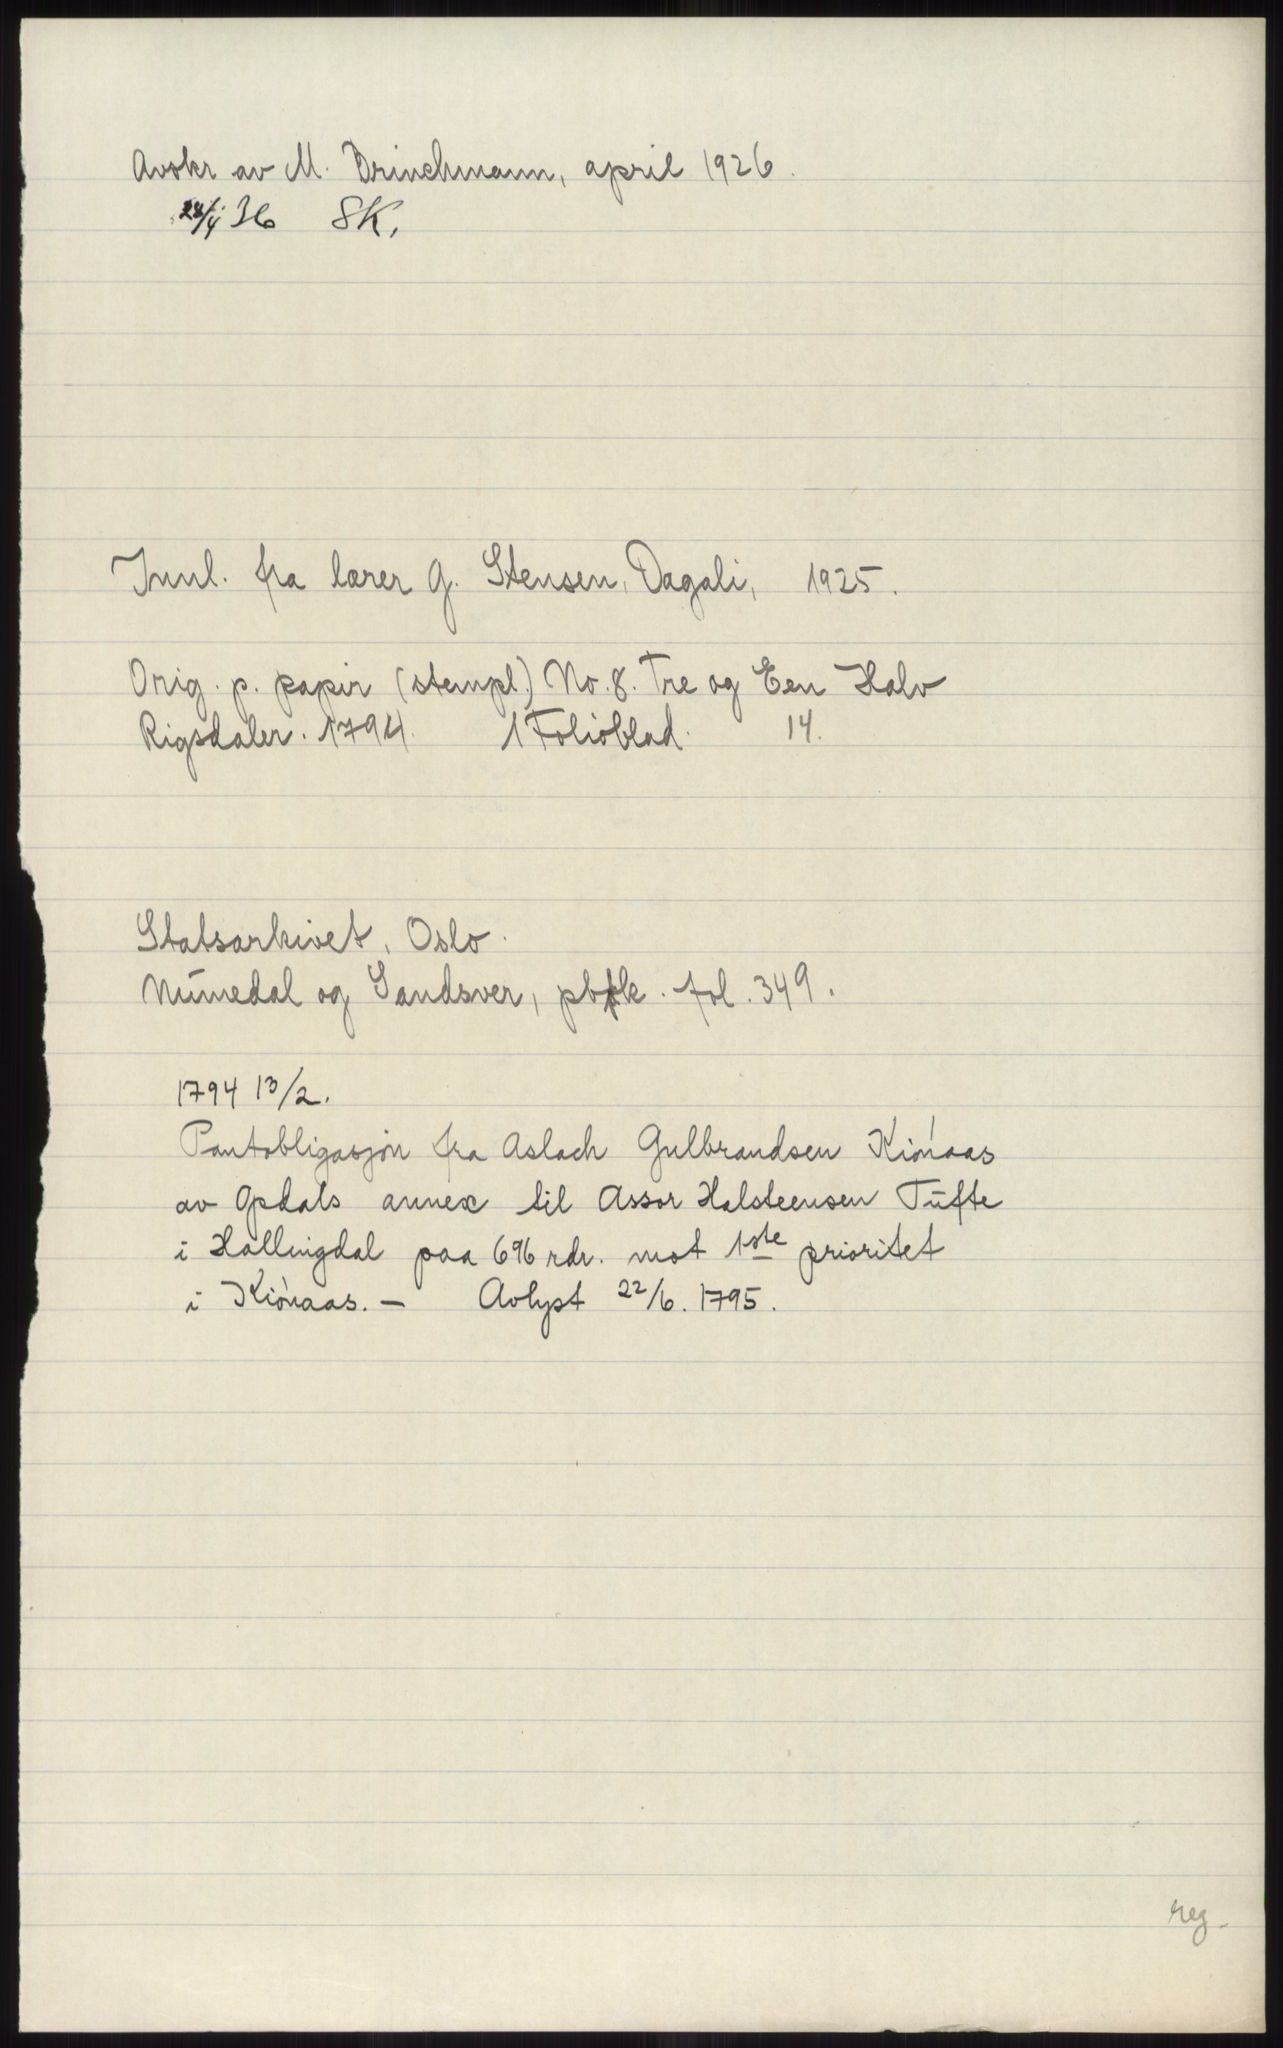 Avskr av M. Brinchmann, april 1926.
28/4 36 SK.
Innl. fra lærer G. Stensen, Dagali, 1925.
Orig. p. papir (stempl.) No. 8. Tre og Een Halv
Rigsdaler. 1794. 1 Folioblad. 14.
Statsarkivet, Oslo.
Numedal og Sandsver, pbk. fol. 349.
1794 13/2.
Pantobligasjon fra Aslach Gulbrandsen Kiónaas
av Opdals annex til Assor Halsteensen Tufte
i Hallingdal paa 696 rdr. mot 1ste prioritet
i Kiónaas. — Avlyst 22/6. 1795.
reg.